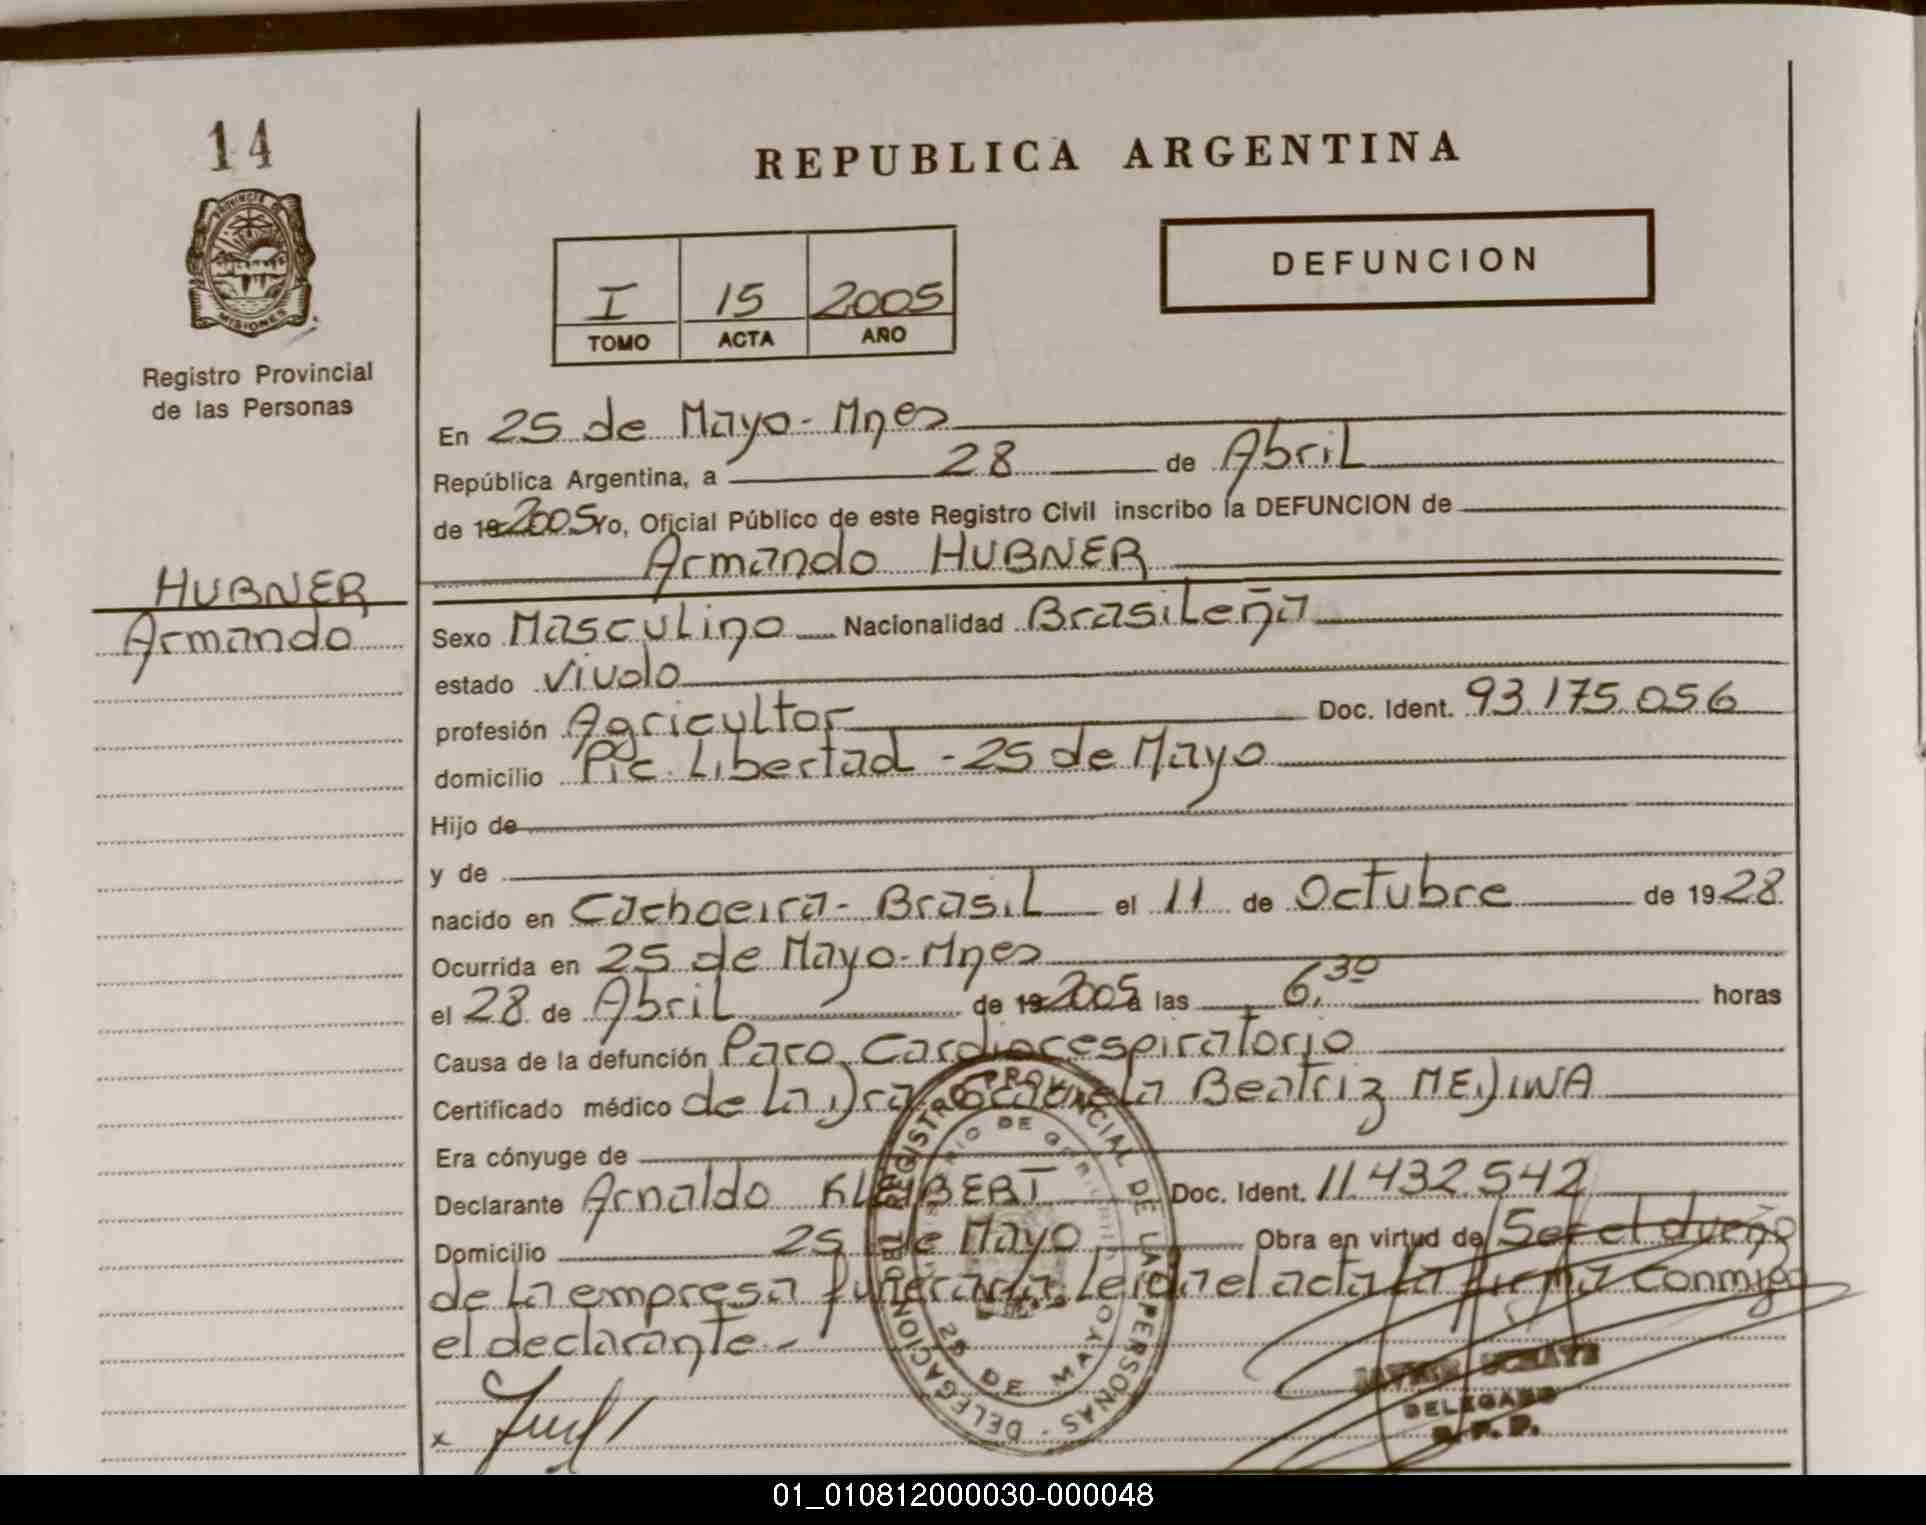 14
REPUBLICA ARGENTINA
PROVINCIA DE
MISIONES
Registro Provincial
de las Personas
DEFUNCION
I 15 2005
TOMO ACTA AÑO
En 25 de Mayo - Mnes
República Argentina, a 28 de Abril
de 19 2005 yo, Oficial Público de este Registro Civil inscribo la DEFUNCION de
Armando HUBNER
HUBNER
Armando
Sexo Masculino Nacionalidad Brasileña
estado Viudo
profesión Agricultor Doc. Ident. 93.175.056
domicilio Pic. Libertad - 25 de Mayo
Hijo de
y de
nacido en Cachoeira - Brasil el 11 de Octubre de 1928
Ocurrida en 25 de Mayo - Mnes
el 28 de Abril de 19 2005 a las 6,30 horas
Causa de la defunción Paro Cardiorespiratorio
Certificado médico de la Dra Beatriz MEDINA
Era cónyuge de
Declarante Arnaldo Doc. Ident. 11.432.542
Domicilio 25 de Mayo Obra en virtud de Ser el dueño
de la empresa funeraria. Leida el acta la firma conmigo
el declarante.-
DELEGACION DEL REGISTRO PROVINCIAL DE LAS PERSONAS
25 DE MAYO
x
DELEGADO
R. P. P.
01_010812000030-000048